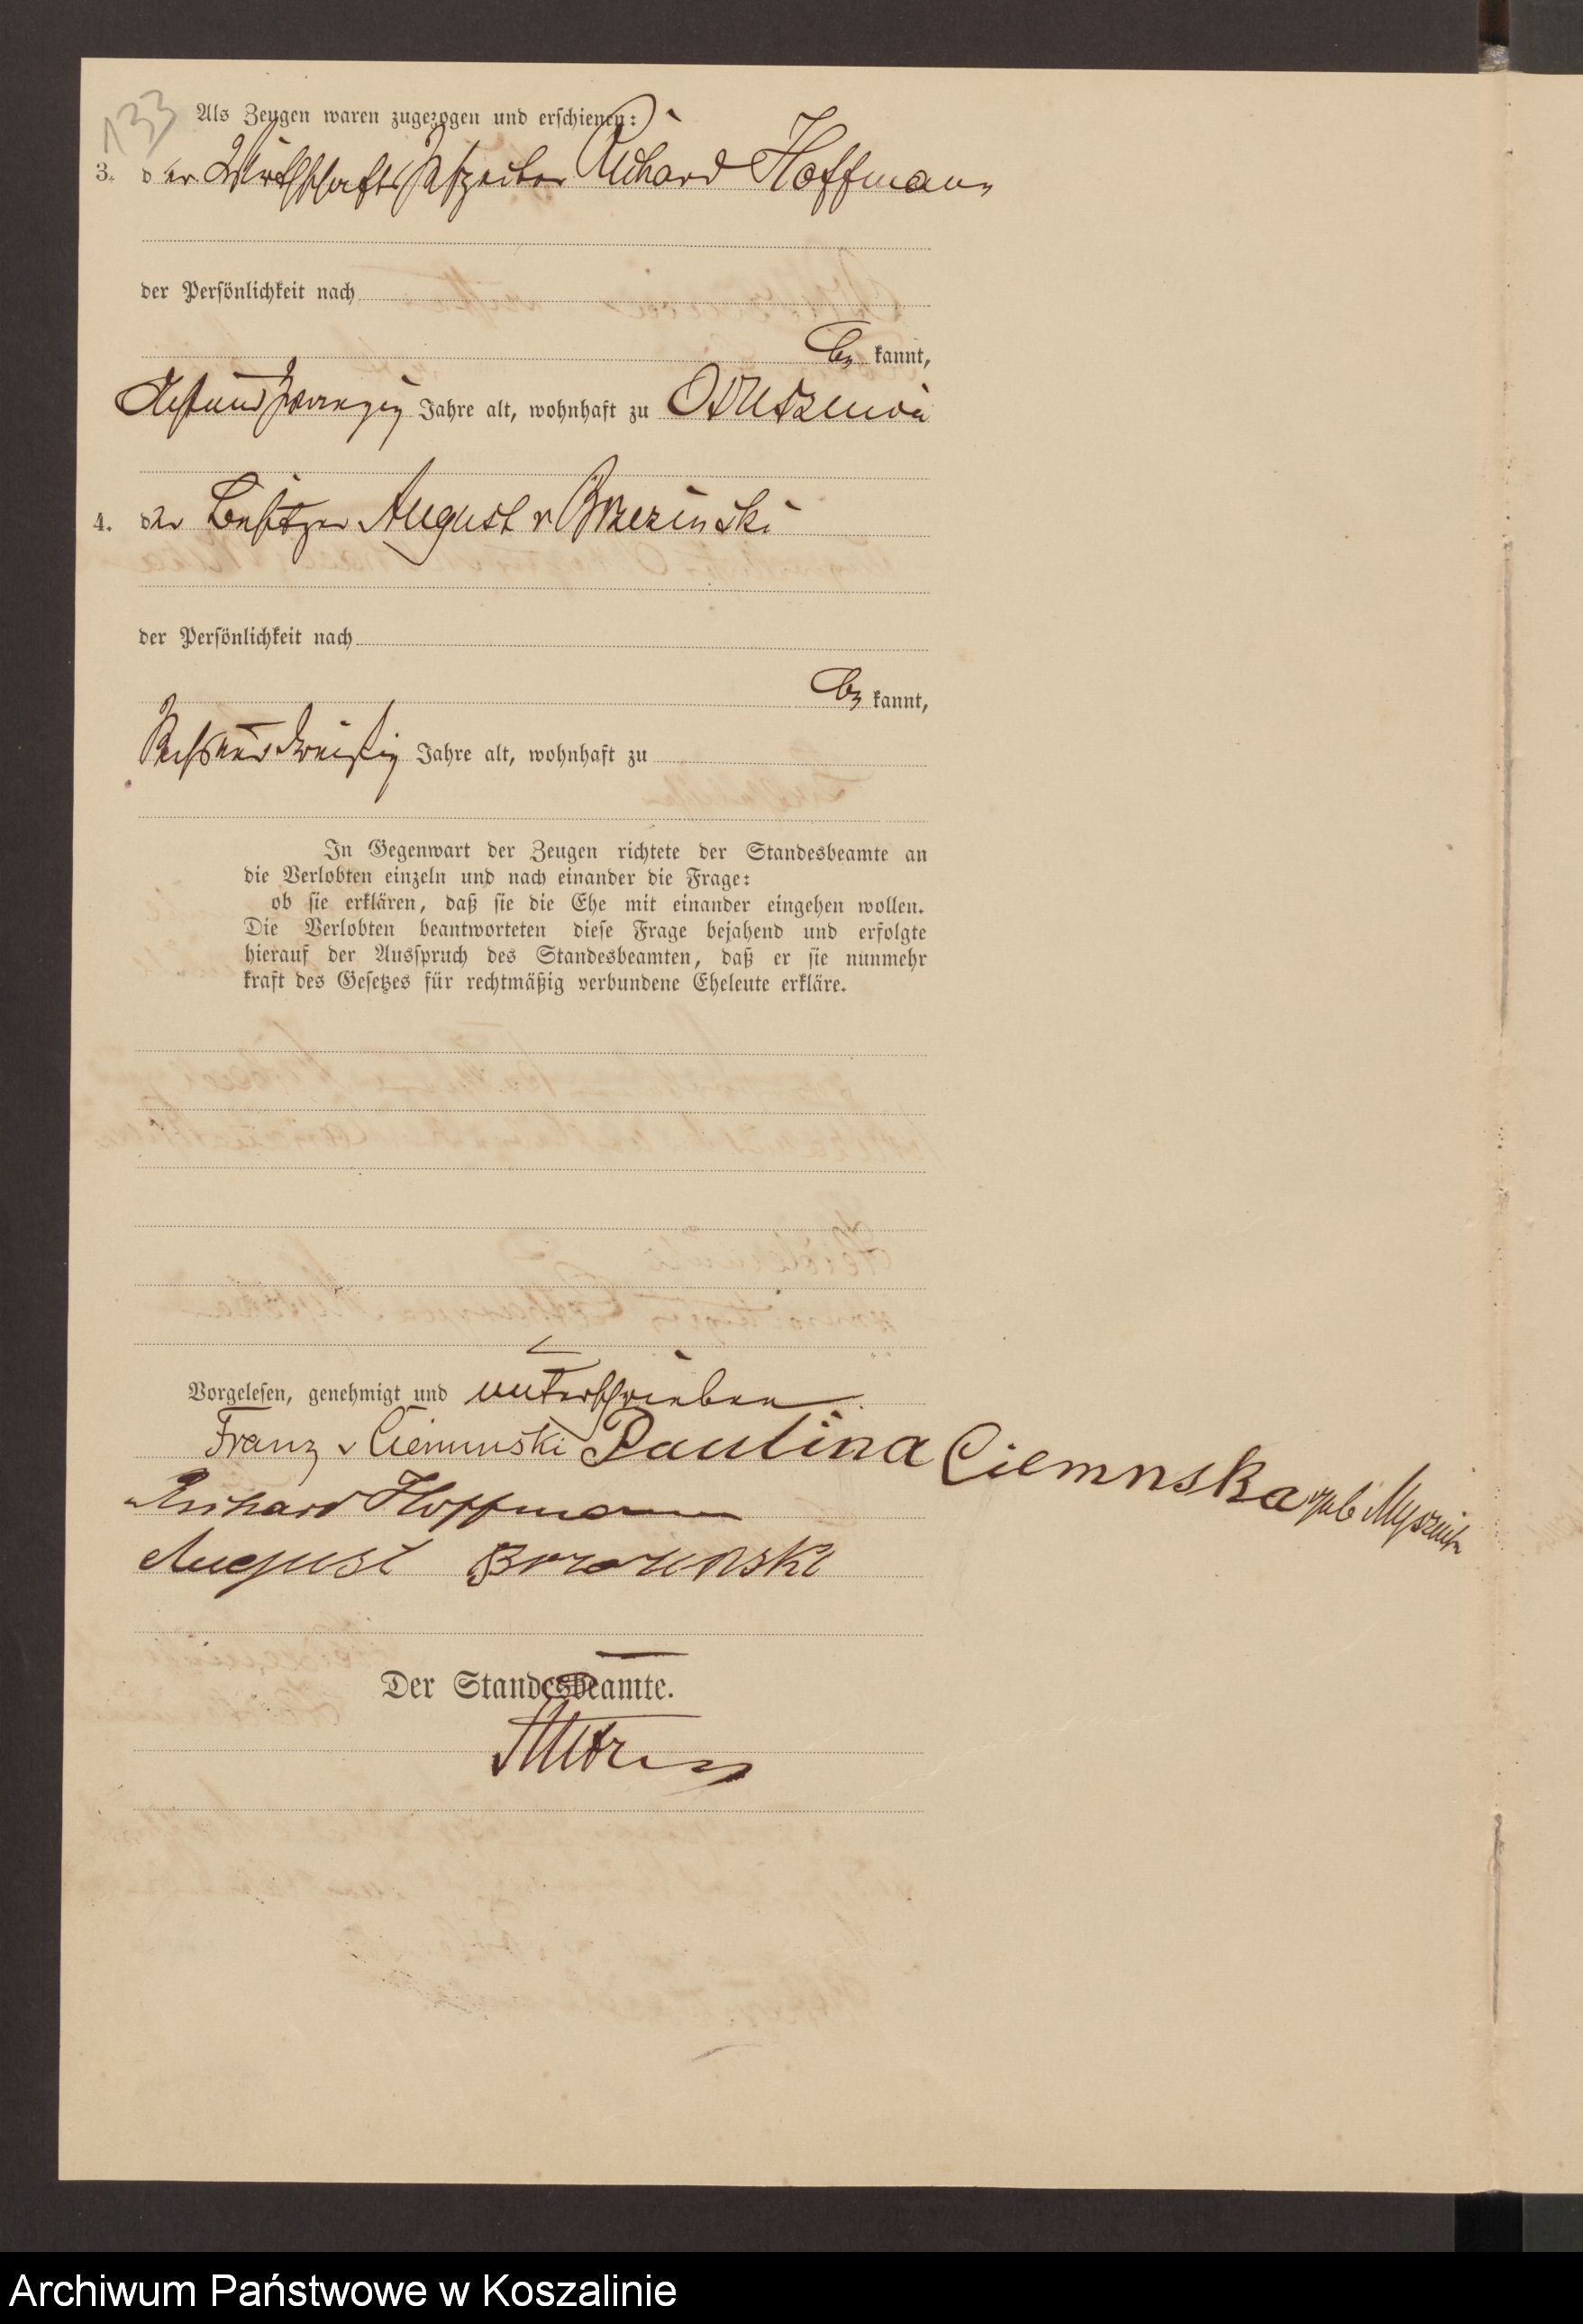 133
Als Zeugen waren zugezogen und erschienen:
3. der Richard Hoffmann
der Persönlichkeit nach
be kannt,
Achtundzwanzig Jahre alt, wohnhaft zu
4. der Besitzer August v Brzezinski
der Persönlichkeit nach
be kannt,
Sechsunddreißig Jahre alt, wohnhaft zu
In Gegenwart der Zeugen richtete der Standesbeamte an
die Verlobten einzeln und nach einander die Frage:
ob sie erklären, daß sie die Ehe mit einander eingehen wollen.
Die Verlobten beantworteten diese Frage bejahend und erfolgte
hierauf der Ausspruch des Standesbeamten, daß er sie nunmehr
kraft des Gesetzes für rechtmäßig verbundene Eheleute erkläre.
Vorgelesen, genehmigt und unterschrieben
Franz v Ciemnski Paulina Ciemnska geb
Richard Hoffmann
August
Der Standesbeamte.
Archiwum Państwowe w Koszalinie